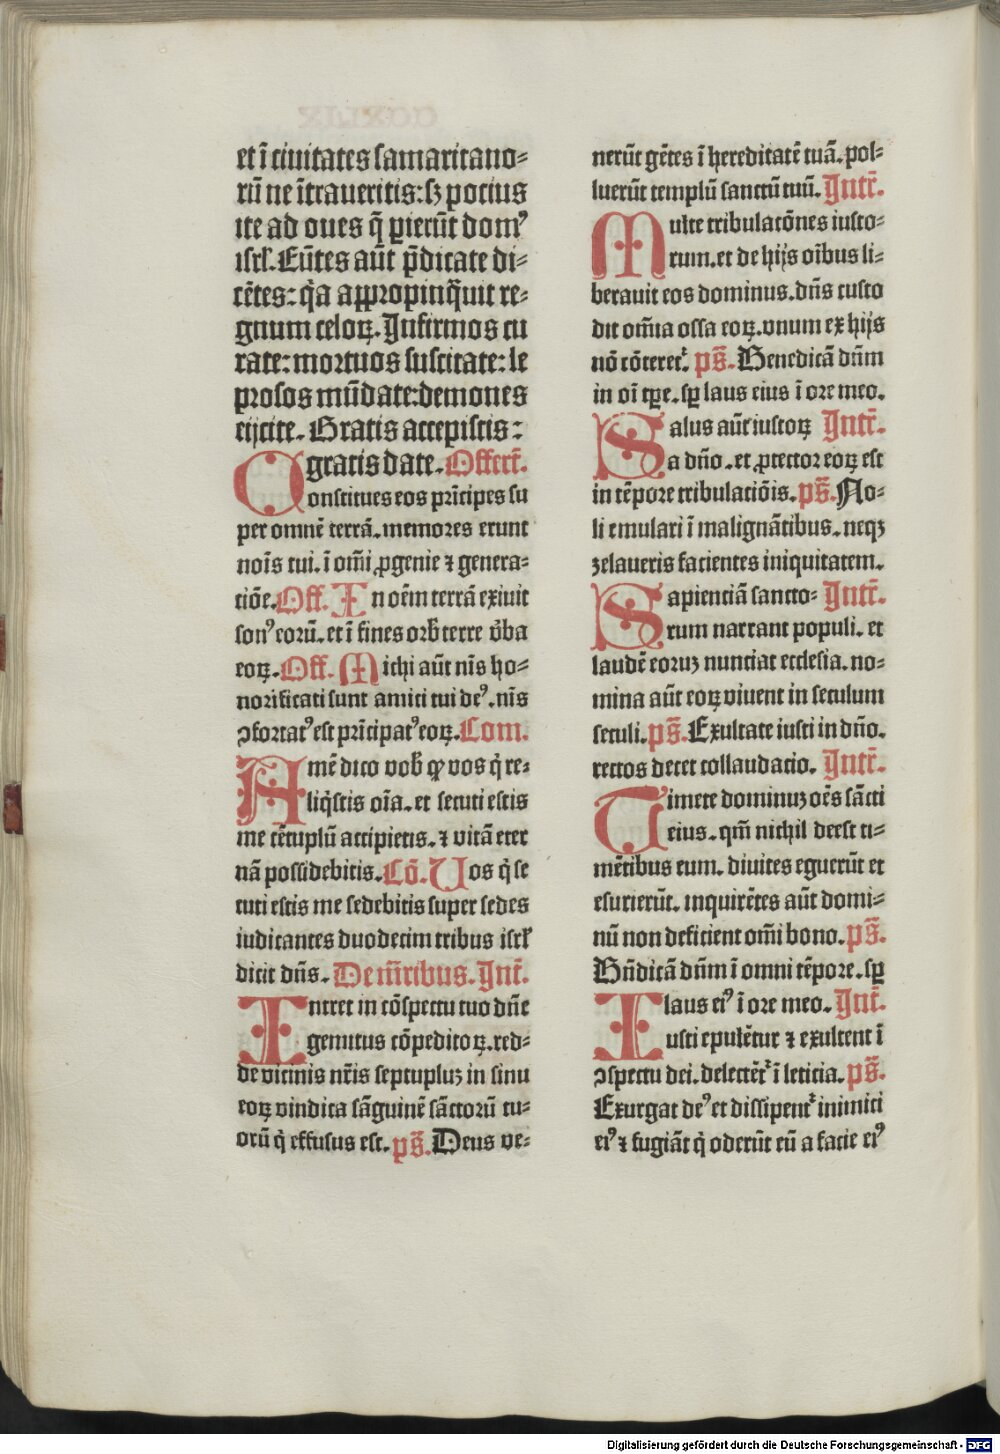 et ī ciuitates samaritano⸗
rū ne ītraueritis: sꝫ potius
ite ad oues q̄ ꝑierūt dom⁹
isrl̕. Eūtes aūt p̄dicate di⸗
cētes: q̇a aꝓpropinq̇uit re⸗
gnum celoꝝ. Infirmos cu
rate: mortuos suscitate: le
prosos mūdate: demones
eijcite. Gratis accepistis:
gratis date. Offert̄.
Constitues eos prīcipes su
per omnē terrā. memores erunt
noīs tui. ī om̄i ꝓgenie ⁊ genera⸗
tiōe. Off. In oēm terrā exiuit
son⁹ eorū. et ī fines orb̄ terre v̄ba
eoꝝ. Off. Michi aūt nīs ho⸗
norificati sunt amici tui de⁹. nīs
ↄfortat⁹ est prīcipat⁹ eoꝝ. Com.
Amē dico vob̄ ꝙ vos q̇ re⸗
liq̇stis oīa. et secuti estis
me cētuplū accipietis. ⁊ vitā eter
nā possidebitis. Cō. Uos q̇ se
cuti estis me sedebitis super sedes
iudicantes duodecim tribus isrl̕
dicit dn̄s. De m̄ribus. Int̄.
Intret in cōspectu tuo dn̄e
gemitus cōpeditoꝝ. red⸗
de vicinis nr̄is septupluꝫ in sinu
eoꝝ vindica sāguinē sāctorū tu⸗
orū q̇ effusus est. p̄s. Deus ve⸗
nerūt gētes ī hereditatē tuā. pol⸗
luerūt templū sanctū tuū. Intr̄.
Multe tribulatōnes iusto⸗
rum. et de hijs oībus li⸗
berauit eos dominus. dn̄s custo
dit om̄ia ossa eoꝝ. vnum ex hijs
nō cōteret᷑. p̄s. Benedicā dn̄m
in oī tꝑe. sꝑ laus eius ī ore meo.
Salus aūt iustoꝝ Intr̄.
a dn̄o. et ꝓtector eoꝝ est
in tēpore tribulatiōis. p̄s. No⸗
li emulari ī malignātibus. neqꝫ
zelaueris facientes iniquitatem.
Sapienciā sancto⸗ Intr̄.
rum narrant populi. et
laudē eoruꝫ nunciat ecclesia. no⸗
mina aūt eoꝝ viuent in seculum
seculi. p̄s. Exultate iusti in dn̄o.
rectos decet collaudacio. Intr̄.
Timete dominuꝫ oēs sācti
eius. qm̄ nichil deest ti⸗
mētibus eum. diuites eguerūt et
esurierūt. inquirētes aūt domi⸗
nū non deficient om̄i bono. p̄s.
Bn̄dicā dn̄m ī omni tēpore. sꝑ
laus ei⁹ ī ore meo. Int̄.
Iusti epulēt᷑ur ⁊ exultent ī
ↄspectu dei. delectēt᷑ ī leticia. p̄s.
Exurgat de⁹ et dissipent᷑ inimici
ei⁹ ⁊ fugiāt q̇ oderūt eū a facie ei⁹
Digitalisierung gefördert durch die Deutsche Forschungsgemeinschaft - DFG